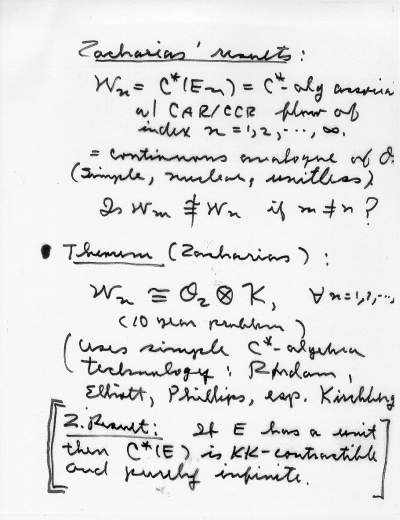 Zacharias' results:
Wn = C*(En) = C*-alg associa
w/ CAR/CCR flow of
index n = 1,2,..., ∞.
= continuous analogue of O.
(simple, nuclear, unitless)
Is Wm ≇ Wn if m ≠ n ?
• Theorem (Zacharias):
Wn ≅ O2 ⊗ K, ∀ n=1,2,...,
(10 year problem)
(uses simple C*-algebra
technology: Rørdam,
Elliott, Phillips, esp. Kirchberg
[Z. Result: If E has a unit
then C*(E) is KK-contractible
and purely infinite.]